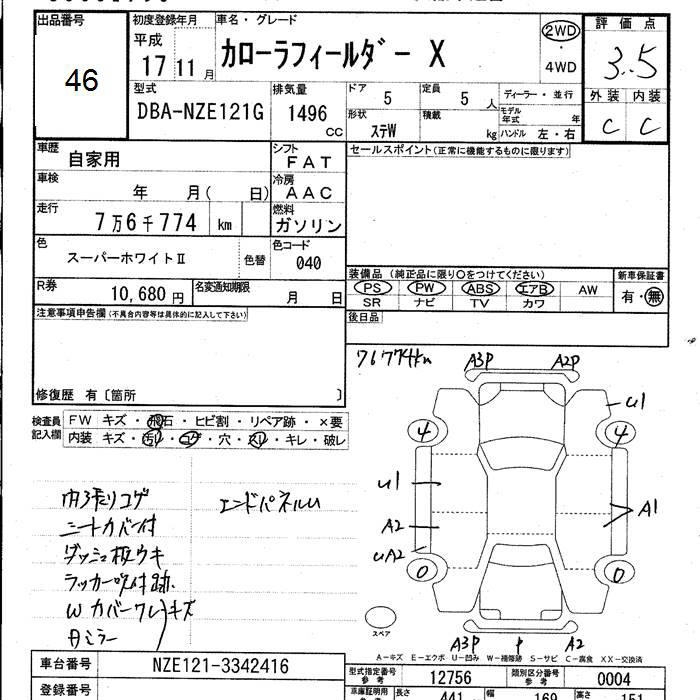 出品番号
46
初度登録年月
平成
17 11 月
車名・グレード
カローラフィールダー X
2WD
・
4WD
評価点
3.5
外装 内装
C C
型式
DBA-NZE121G
排気量
1496
CC
ドア
5
定員
5 人
ディーラー・並行
形状
ステW
積載
kg
モデル年式
年
ハンドル 左・右
車歴
自家用
シフト
FAT
セールスポイント(正常に機能するものに限ります)
車検
年 月( 日)
冷房
AAC
走行
7万6千774 km
燃料
ガソリン
色
スーパーホワイトⅡ
色替
色コード
040
R券
10,680 円
名変通知期限
月 日
装備品 (純正品に限り○をつけてください)
PS PW ABS エアB AW
SR ナビ TV カワ
新車保証書
有・無
後日品
注意事項申告欄(不具合内容等は具体的に記入して下さい)
修復歴 有〔箇所 〕
検査員記入欄
FW キズ・飛石・ヒビ割・リペア跡・×要
内装 キズ・汚れ・コゲ・穴・スレ・キレ・破レ
76774km
A3P A2P
U1
4 4
U1
A1
A2
UA2
0 0
A3P P A2
スペア
内張りコゲ
シートカバー付
ダッシュ板ウキ
ラッカー吹付跡
W カバーワレ キズ
Bミラー
エンドパネルU
A-キズ E-エクボ U-凹み W-補修跡 S-サビ C-腐食 XX-交換済
車台番号
NZE121-3342416
登録番号
型式指定番号
12756
類別区分番号
0004
車庫証明用
長さ
441
幅
169
高さ
151